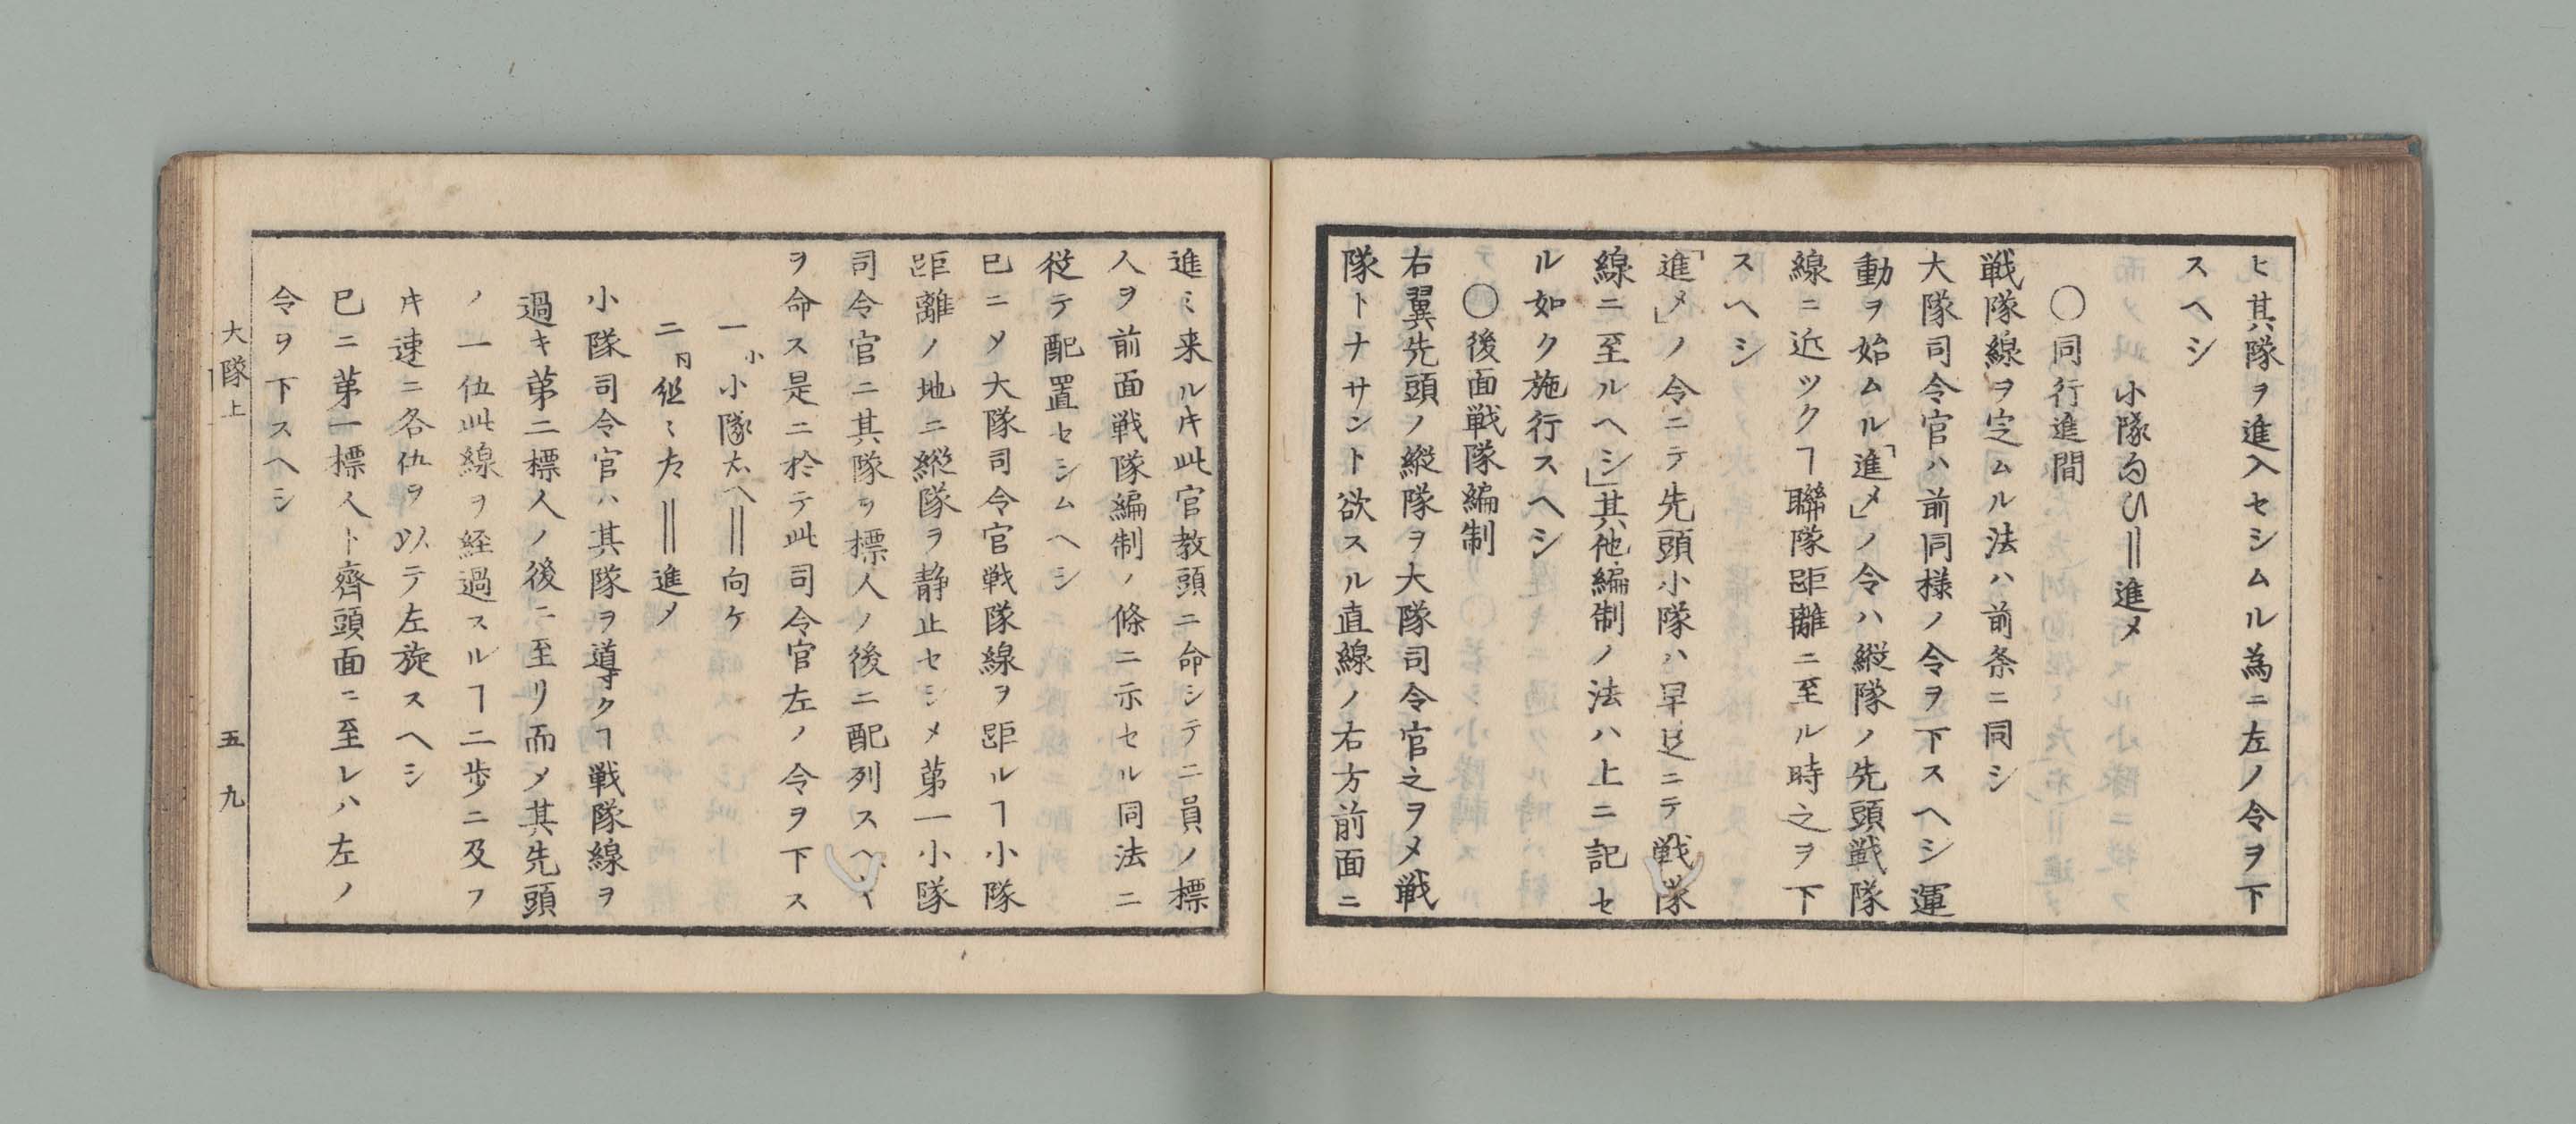 ヒ其隊ヲ進入セシムル為ニ左ノ令ヲ下
スヘシ
小隊向ひ‖進メ
〇同行進間
戦隊線ヲ定ムル法ハ前条ニ同シ
大隊司令官ハ前同様ノ令ヲ下スヘシ運
動ヲ始ムル「進メ」ノ令ハ縦隊ノ先頭戦隊
線ニ近ツクヿ聯隊距離ニ至ル時之ヲ下
スヘシ
「進メ」ノ令ニテ先頭小隊ハ早足ニテ戦隊
線ニ至ルヘシ」其他編制ノ法ハ上ニ記セ
ル如ク施行スヘシ
〇後面戦隊編制
右翼先頭ノ縦隊ヲ大隊司令官之ヲメ戦
隊トナサント欲スル直線ノ右方前面ニ
進ミ来ルキ此官教頭ニ命シテ二員ノ標
人ヲ前面戦隊編制ノ條ニ示セル同法ニ
従テ配置セシムヘシ
已ニメ大隊司令官戦隊線ヲ距ルヿ小隊
距離ノ地ニ縦隊ヲ静止セシメ第一小隊
司令官ニ其隊ヲ標人ノ後ニ配列スヘキ
ヲ命ス是ニ於テ此司令官左ノ令ヲ下ス
一小小隊右へ‖向ケ
二内組ミ左‖進メ
小隊司令官ハ其隊ヲ導クヿ戦隊線ヲ
過キ第二標人ノ後ニ至リ而メ其先頭
ノ一伍此線ヲ経過スルヿ二歩ニ及フ
キ速ニ各伍ヲ以テ左旋スヘシ
已ニ第一標人ト齊頭面ニ至レハ左ノ
令ヲ下スヘシ
大隊上 五九